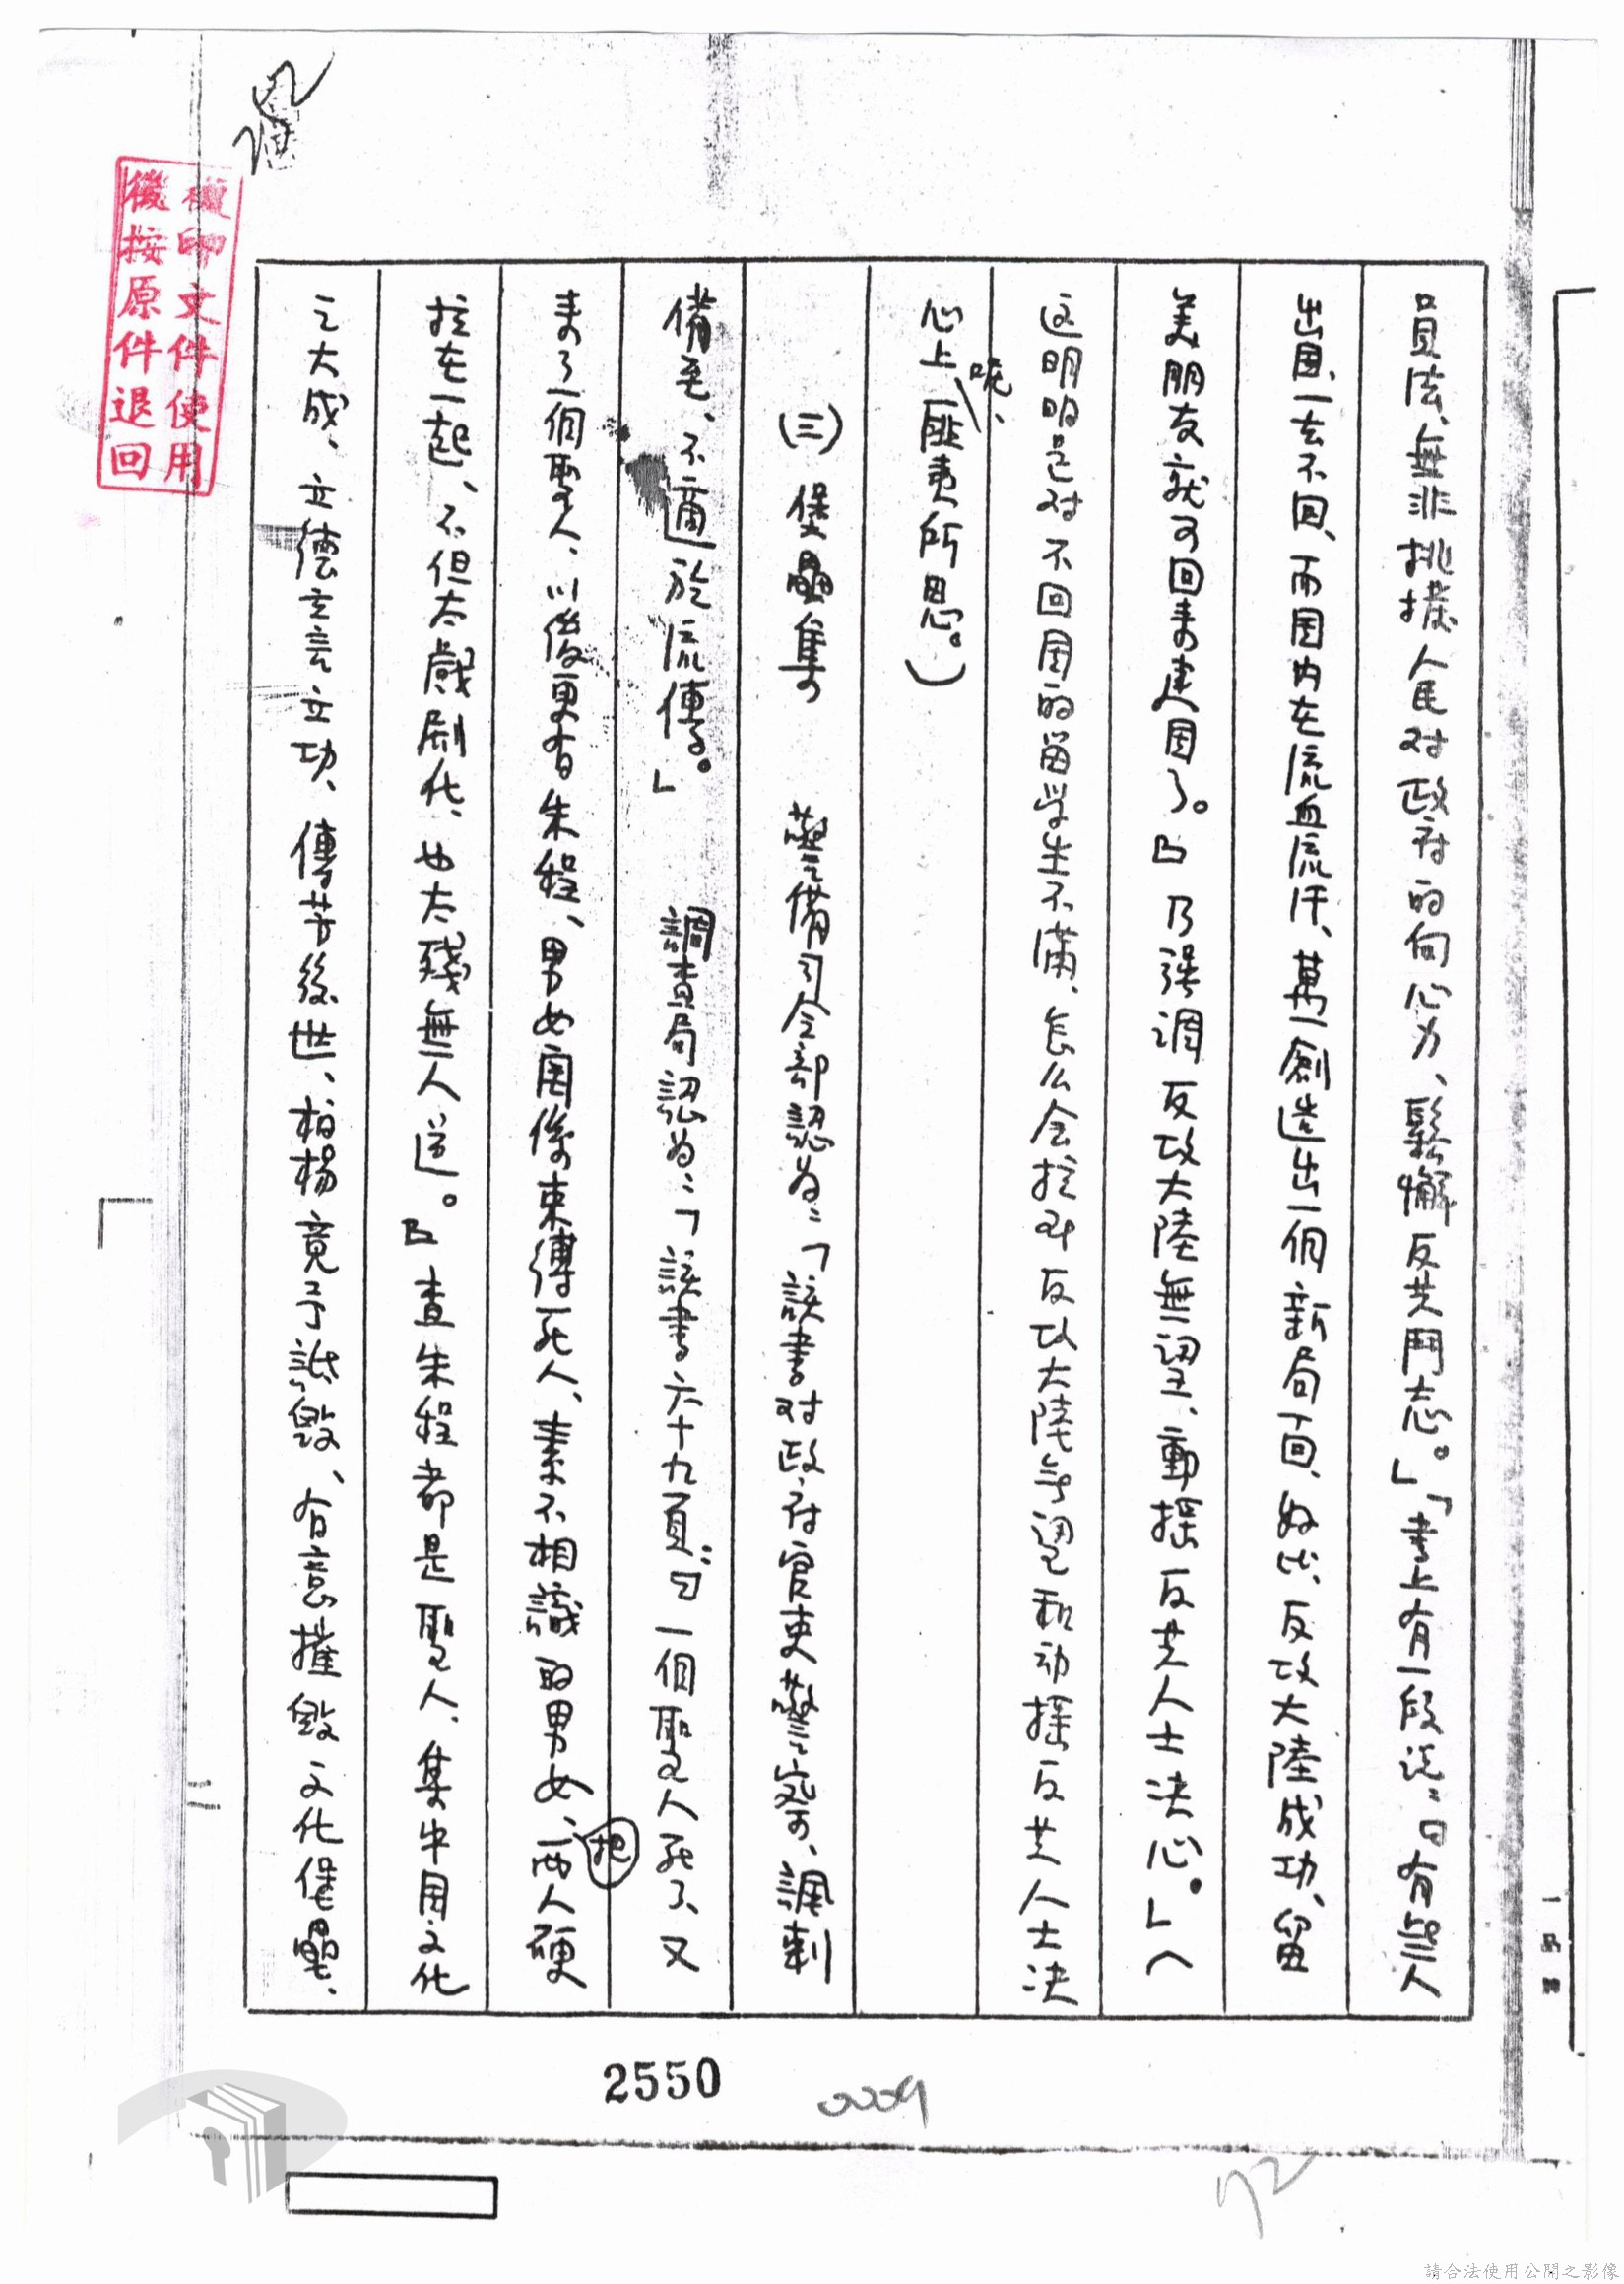 員法、無非挑撥人民对政府的向心力、鬆懈反共鬥志。」「書上有一段说：『有些人
出国、一去不回、而国内在流血流汗、萬一創造出一個新局面、如比、反攻大陸成功、留
美朋友就可回来建国了。』乃强调反攻大陸無望、動搖反共人士決心。」（
这明明是对不回国的留学生不满、怎么会扯到反攻大陸無望和动搖反共人士决
心上呢、匪夷所思。）
(三) 堡壘集　警備司令部認為：「該書对政府官吏警察、諷刺
備至、不適於流傳。」　調查局認為：「該書六十九頁：『一個聖人死了、又
来了一個聖人、以後更有朱程、男女関係束縛死人、素不相識的男女、把兩人硬
拉在一起、不但太戲劇化、也太殘無人道。』查朱程都是聖人、集中国文化
之大成、立德立言立功、傳芳後世、柏楊竟予詆毀、有意摧毀文化堡壘、
複印文件使用
後按原件退回
2550
0009
72
一品
請合法使用公開之影像